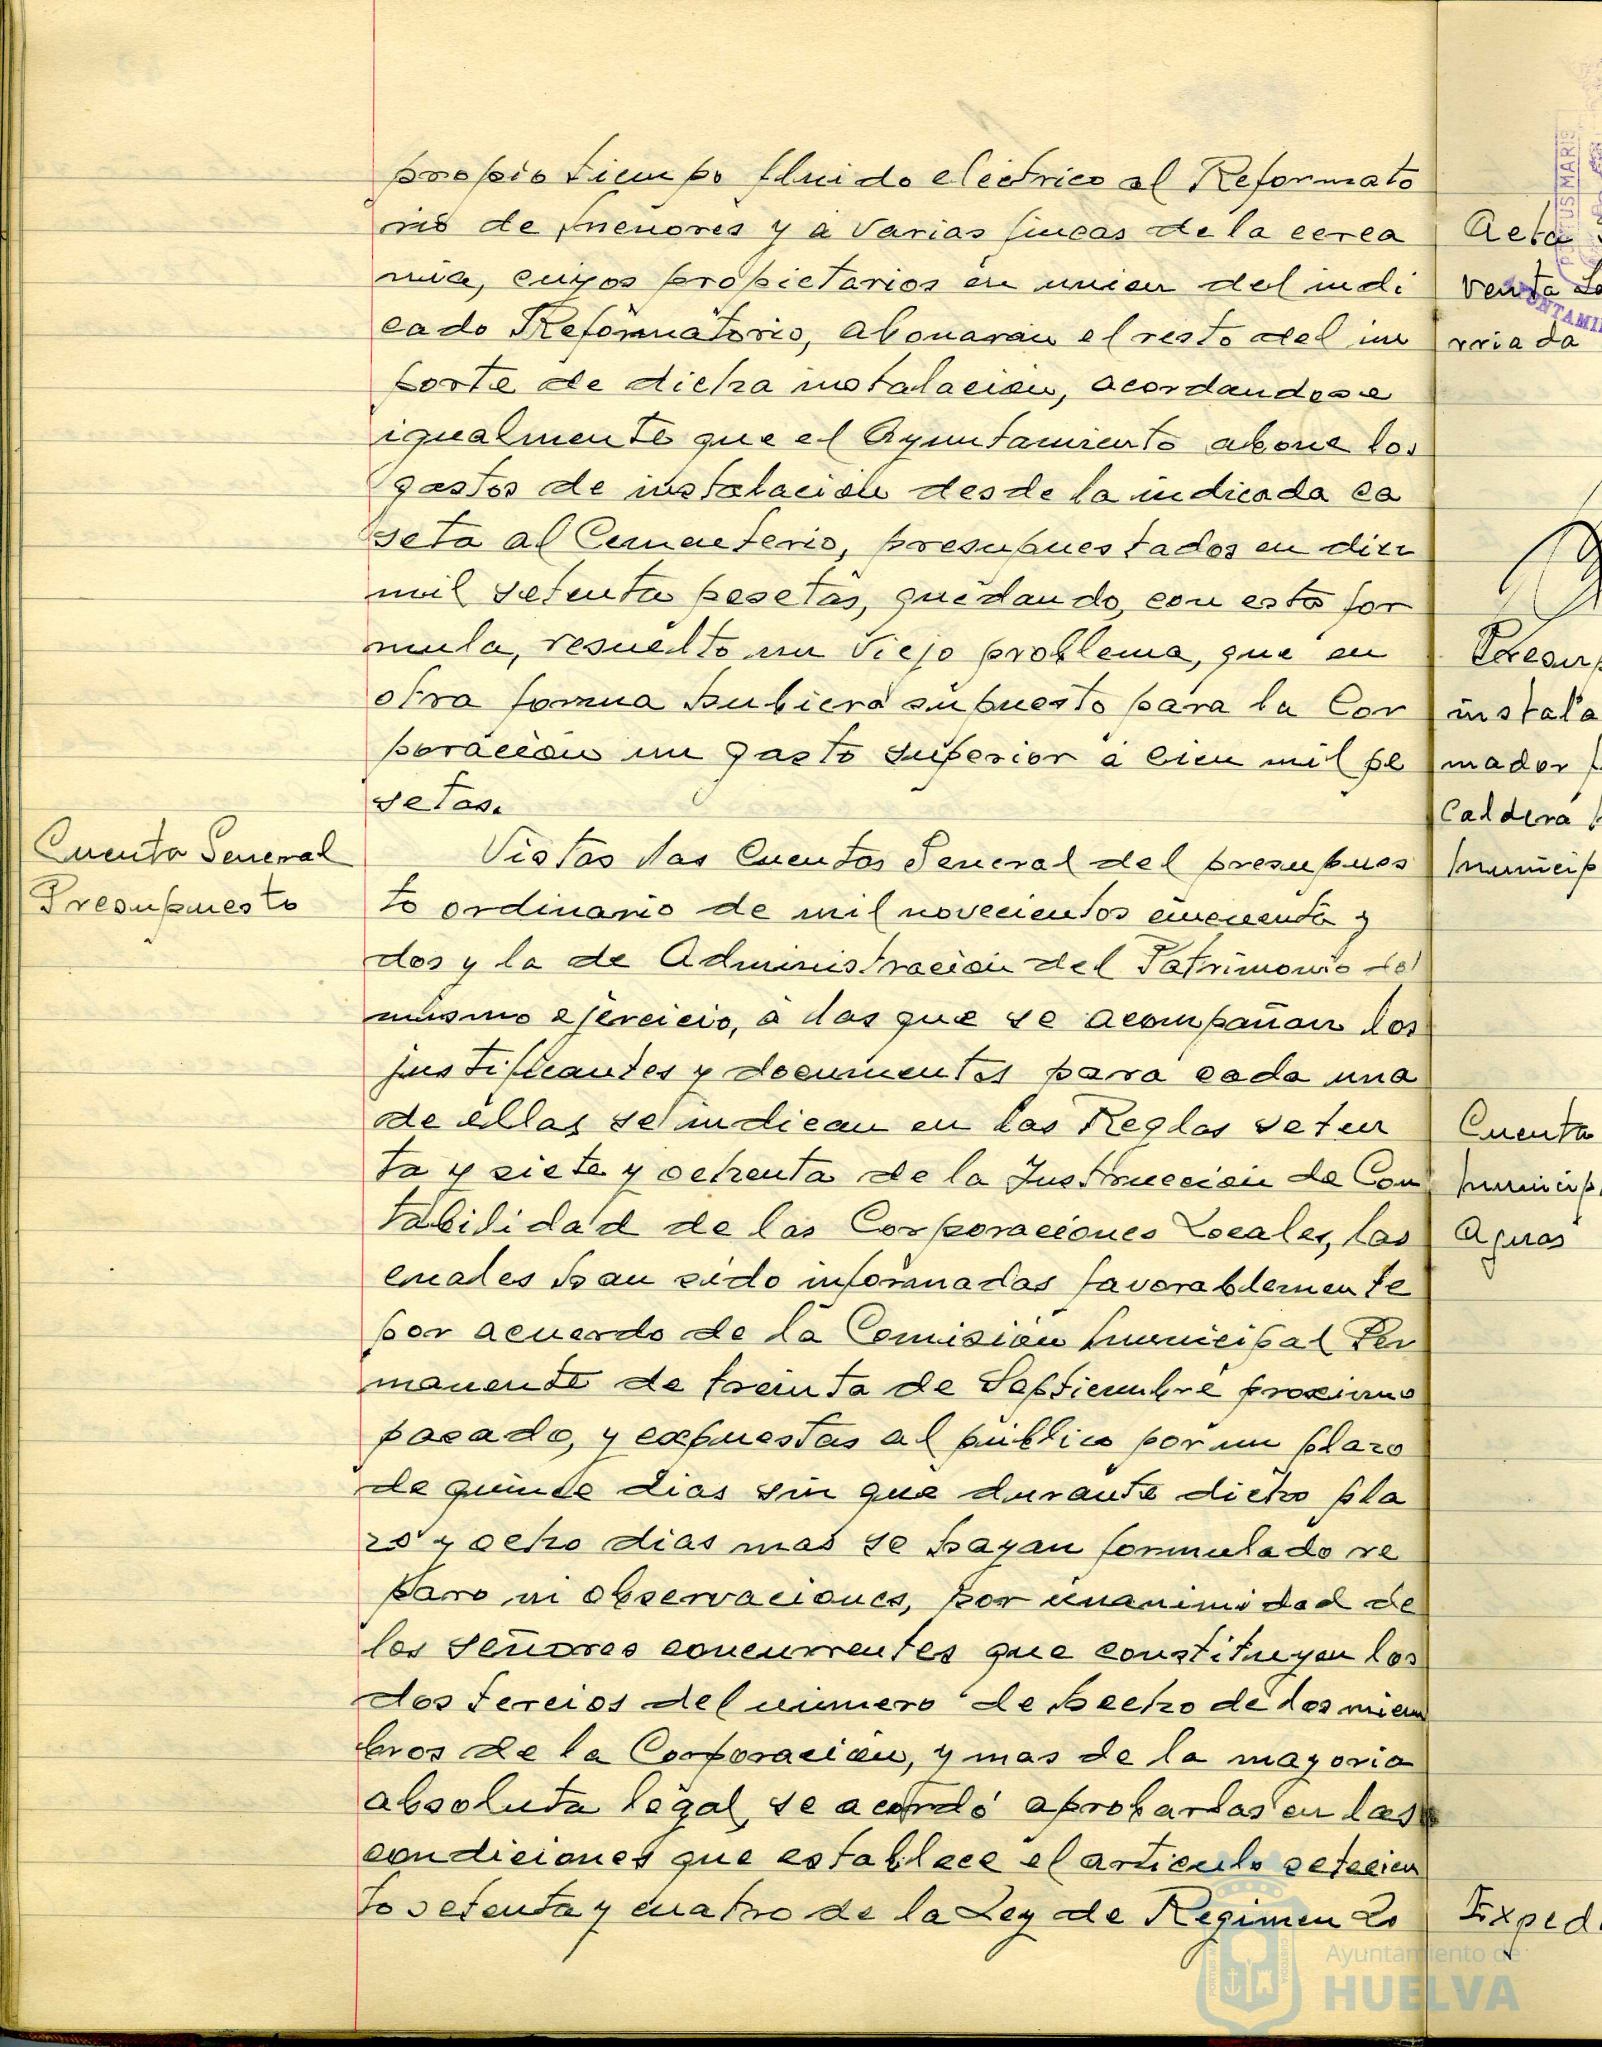 propio tiempo fluido eléctrico al Reformato
rio de Menores y a varias fincas de la cerca
nia, cuyos propietarios en union del indi
cado Reformatorio, abonarán el resto del im
porte de dicha instalación, acordandose
igualmente que el Ayuntamiento abone los
gastos de instalación desde la indicada ca
seta al Cementerio, presupuestados en diez
mil setenta pesetas, quedando, con esta for
mula, resuelto un viejo problema, que en
otra forma hubiera supuesto para la Cor
poración un gasto superior a cien mil pe
setas.
Cuenta General
Presupuesto
Vistas las Cuentas General del presupues
to ordinario de mil novecientos cincuenta y
dos y la de Administración del Patrimonio del
mismo ejercicio, a las que se acompañan los
justificantes y documentos para cada una
de ellas se indican en las Reglas seten
ta y siete y ochenta de la Instrucción de Con
tabilidad de las Corporaciones Locales, las
cuales han sido informadas favorablemente
por acuerdo de la Comisión Municipal Per
manente de treinta de Septiembre proximo
pasado, y expuestas al público por un plazo
de quince dias sin que durante dicho pla
zo y ocho dias mas se hayan formulado re
paro ni observaciones, por unanimidad de
los señores concurrentes que constituyen los
dos tercios del número de hecho de los miem
bros de la Corporación, y mas de la mayoria
absoluta legal, se acordó aprobarlas en las
condiciones que establece el articulo setecien
to setenta y cuatro de la Ley de Regimen Lo
Acta
venta
rriada
Presup
instala
mador
Caldera
Municip
Cuenta
Municip
Aguas
Exped
PORTUS MARIS
AYUNTAMI
PORTUS MARIS
CUSTODIA
Ayuntamiento de
HUELVA